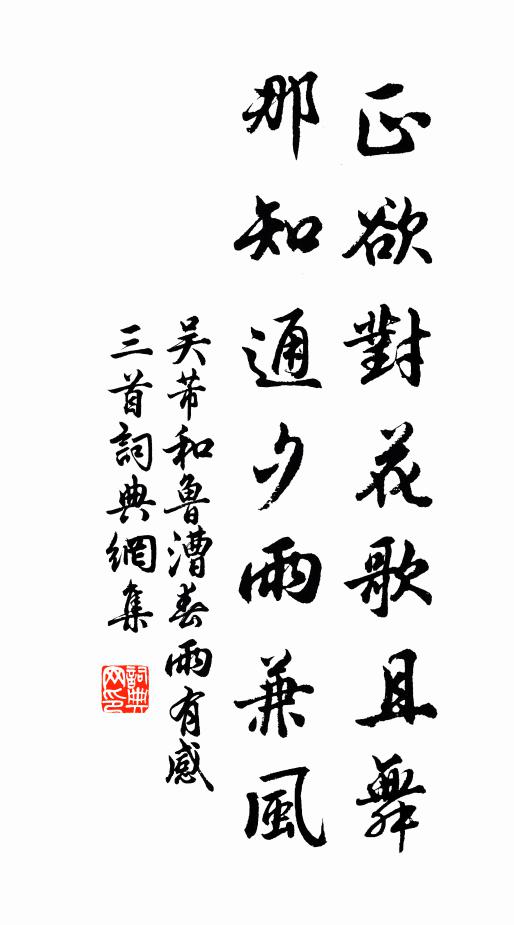 正欲對花歌且舞
那知通夕雨兼風
吳芾和魯漕春雨有感
三首詞典網集
詞典网印